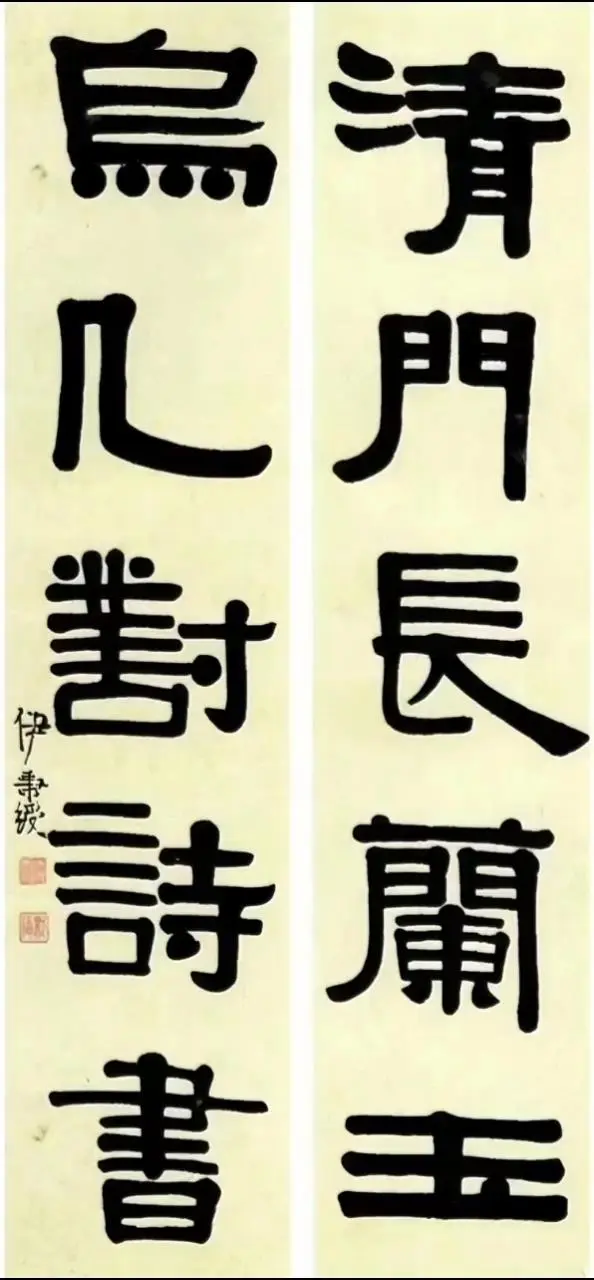 清門長蘭玉
烏几對詩書
伊秉綬